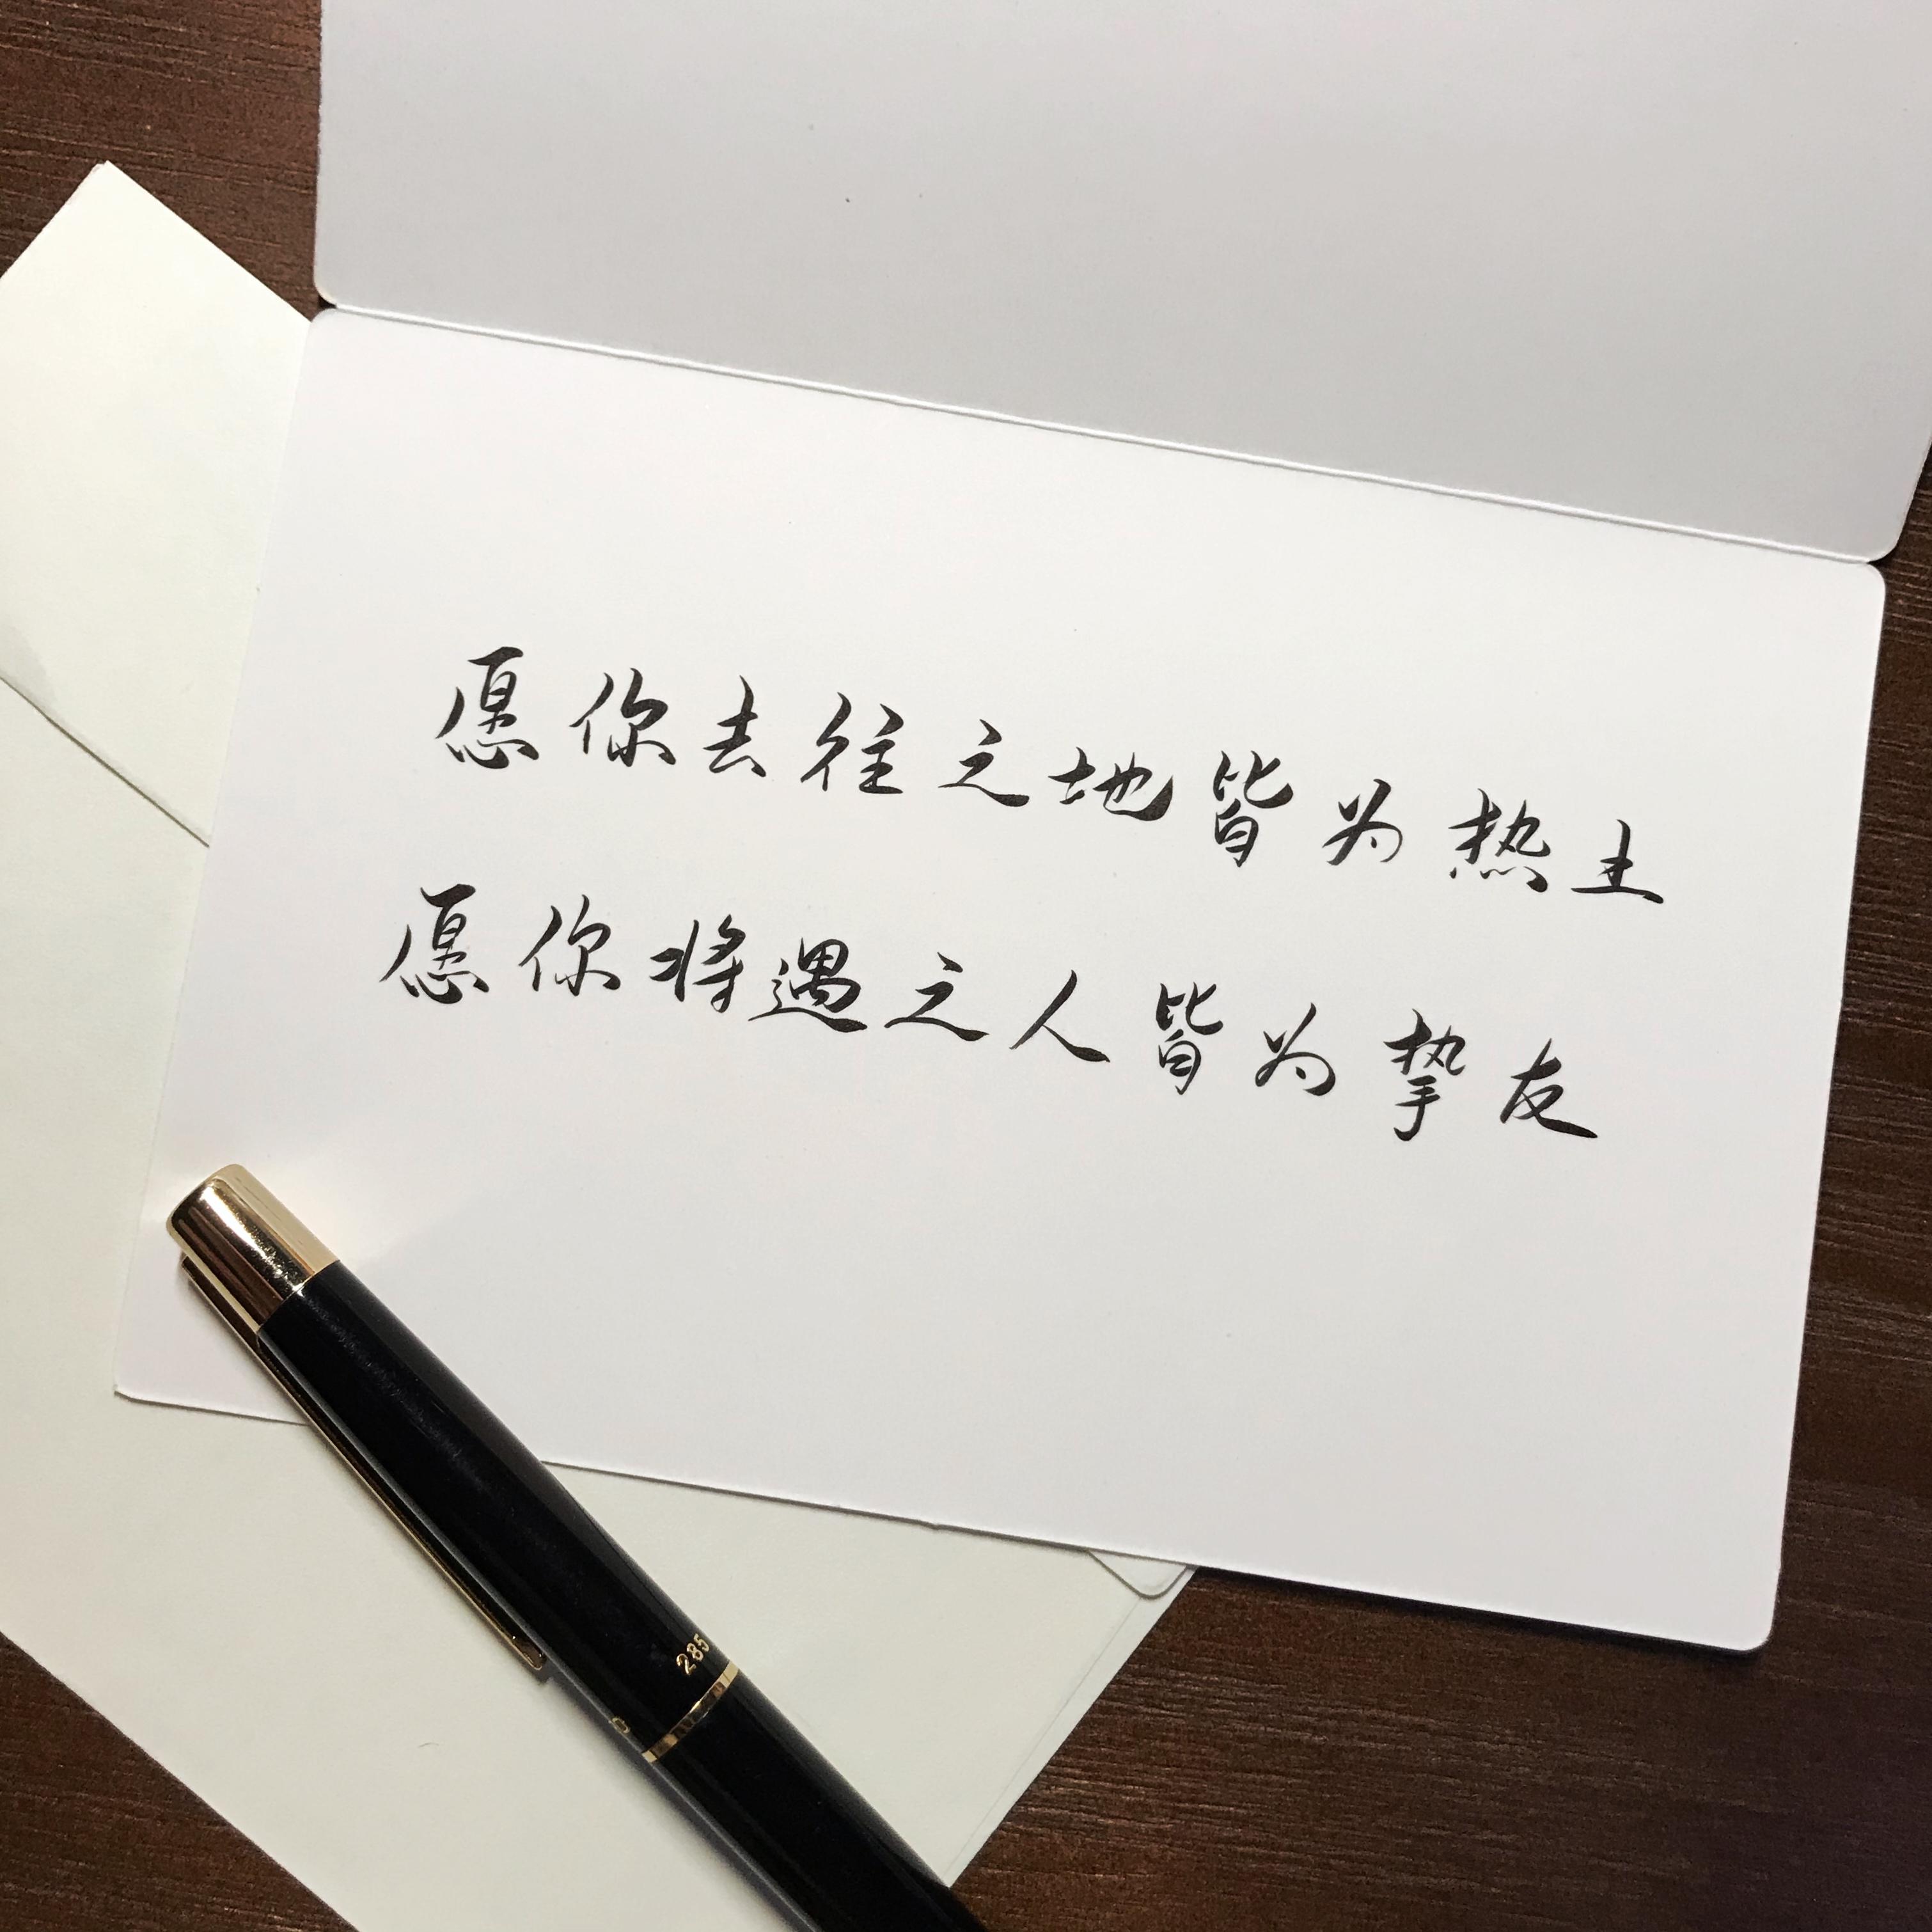 愿你去往之地皆为热土
愿你将遇之人皆为挚友
285